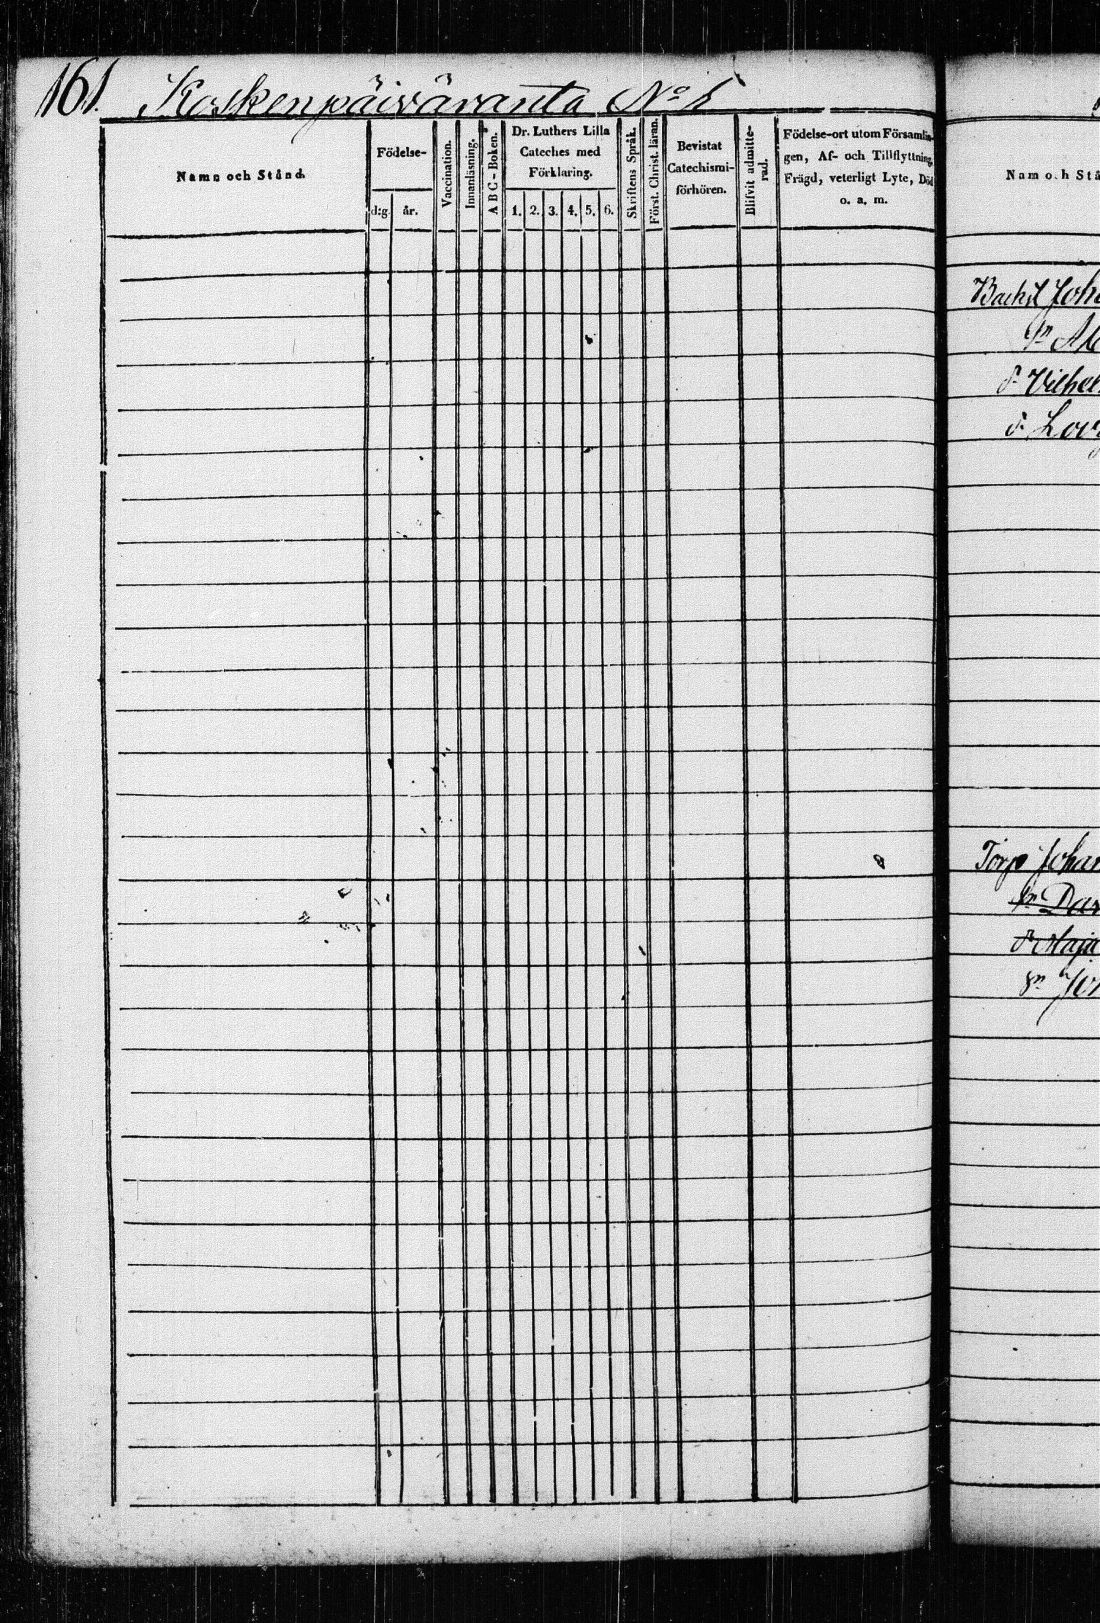 161. Koskenpäiväranta No 1
Namn och Stånd.
Födelse-
d:g. år.
Vaccination.
Innanläsning.
ABC-Boken.
Dr. Luthers Lilla
Cateches med
Förklaring.
1. 2. 3. 4. 5. 6.
Skriftens Språk.
Först. Christ. läran.
Bevistat
Catechismi-
förhören.
Blifvit admitte-
rad.
Födelse-ort utom Församlin-
gen, Af- och Tillflyttning,
Frägd, veterligt Lyte, Död
o. a. m.
Namn och Stå
Backst Joha
Vilhel
Lov
Torp Johan